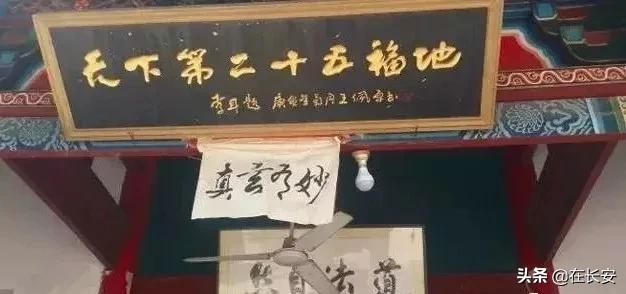 天下第二十五福地
李耳题
妙有玄真
道法自然
头条 @在长安